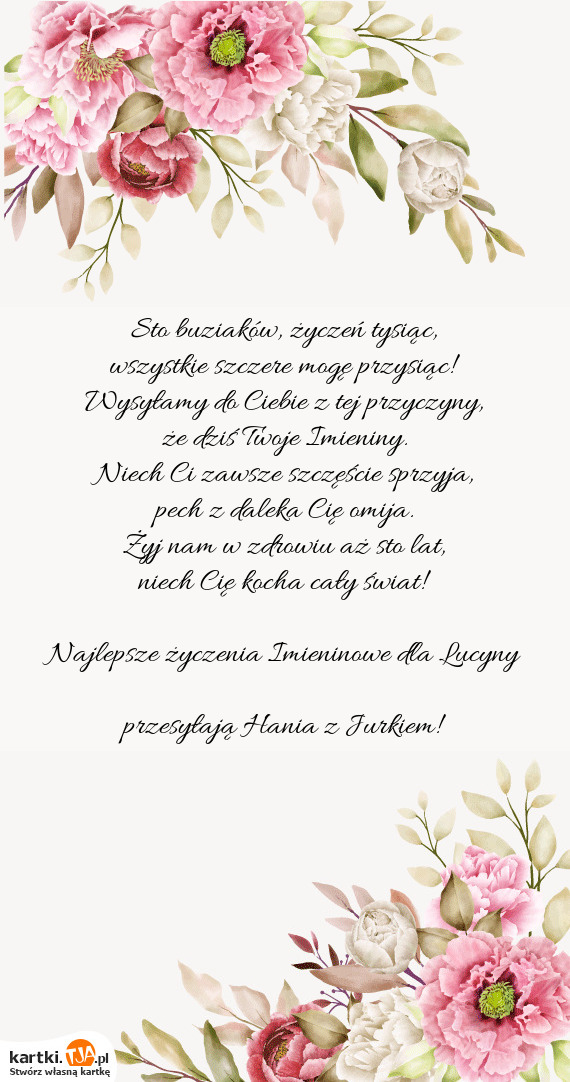 Sto buziaków, życzeń tysiąc,
wszystkie szczere mogę przysiąc!
Wysyłamy do Ciebie z tej przyczyny,
że dziś Twoje Imieniny.
Niech Ci zawsze szczęście sprzyja,
pech z daleka Cię omija.
Żyj nam w zdrowiu aż sto lat,
niech Cię kocha cały świat!
Najlepsze życzenia Imieninowe dla Lucyny
przesyłają Hania z Jurkiem!
kartki.TJA.pl
Stwórz własną kartkę